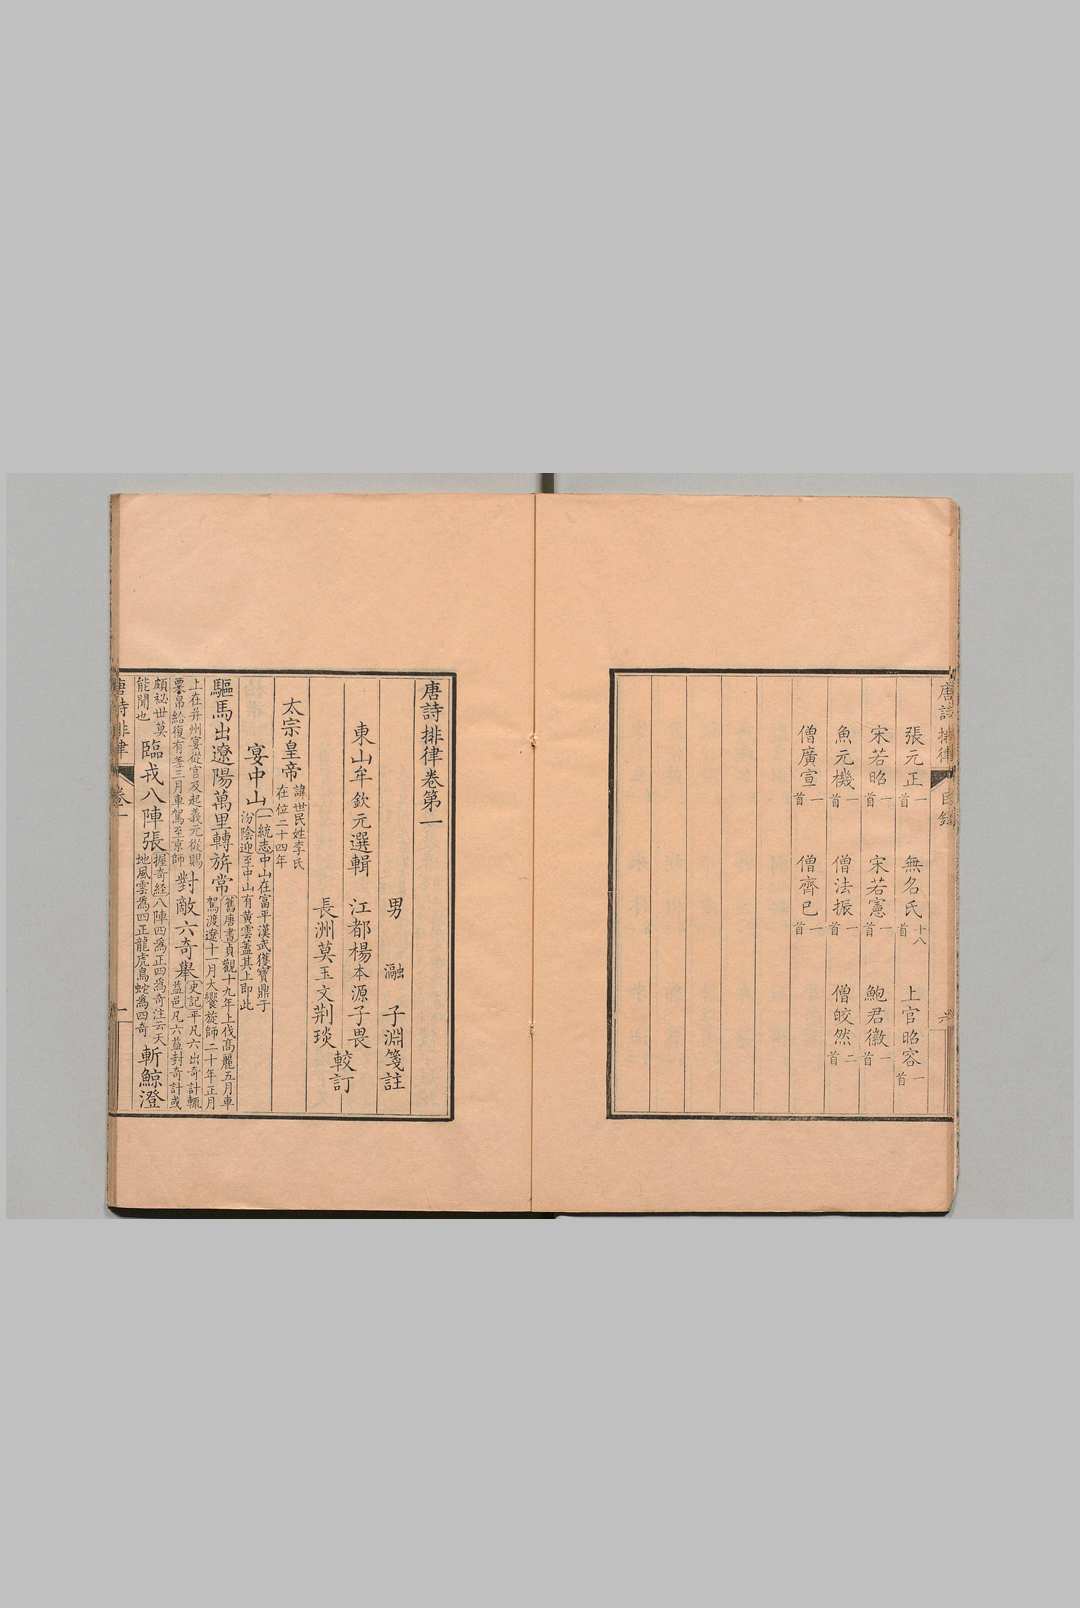 唐詩排律 目錄 六
張元正一首 無名氏十八首 上官昭容一首
宋若昭一首 宋若憲一首 鮑君徽一首
魚元機一首 僧法振一首 僧皎然二首
僧廣宣一首 僧齊已一首
唐詩排律卷第一
男 融 子淵箋註
東山牟欽元選輯 江都楊本源子畏
較訂
長洲莫玉文荆琰
太宗皇帝 諱世民姓李氏在位二十四年
宴中山 一統志中山在富平漢武獲寶鼎于汾陰迎至中山有黃雲蓋其上即此
驅馬出遼陽萬里轉旂常 舊唐書貞觀十九年上伐高麗五月車駕渡遼十一月大饗旋師二十年正月
上在并州宴從官及起義元從賜粟帛給復有差三月車駕至京師 對敵六奇舉 史記平凡六出奇計輒益邑凡六益封奇計或
頗祕世莫能聞也 臨戎八陣張 握奇經八陣四為正四為奇注云天地風雲為四正龍虎鳥蛇為四奇 斬鯨澄
唐詩排律 卷一 一